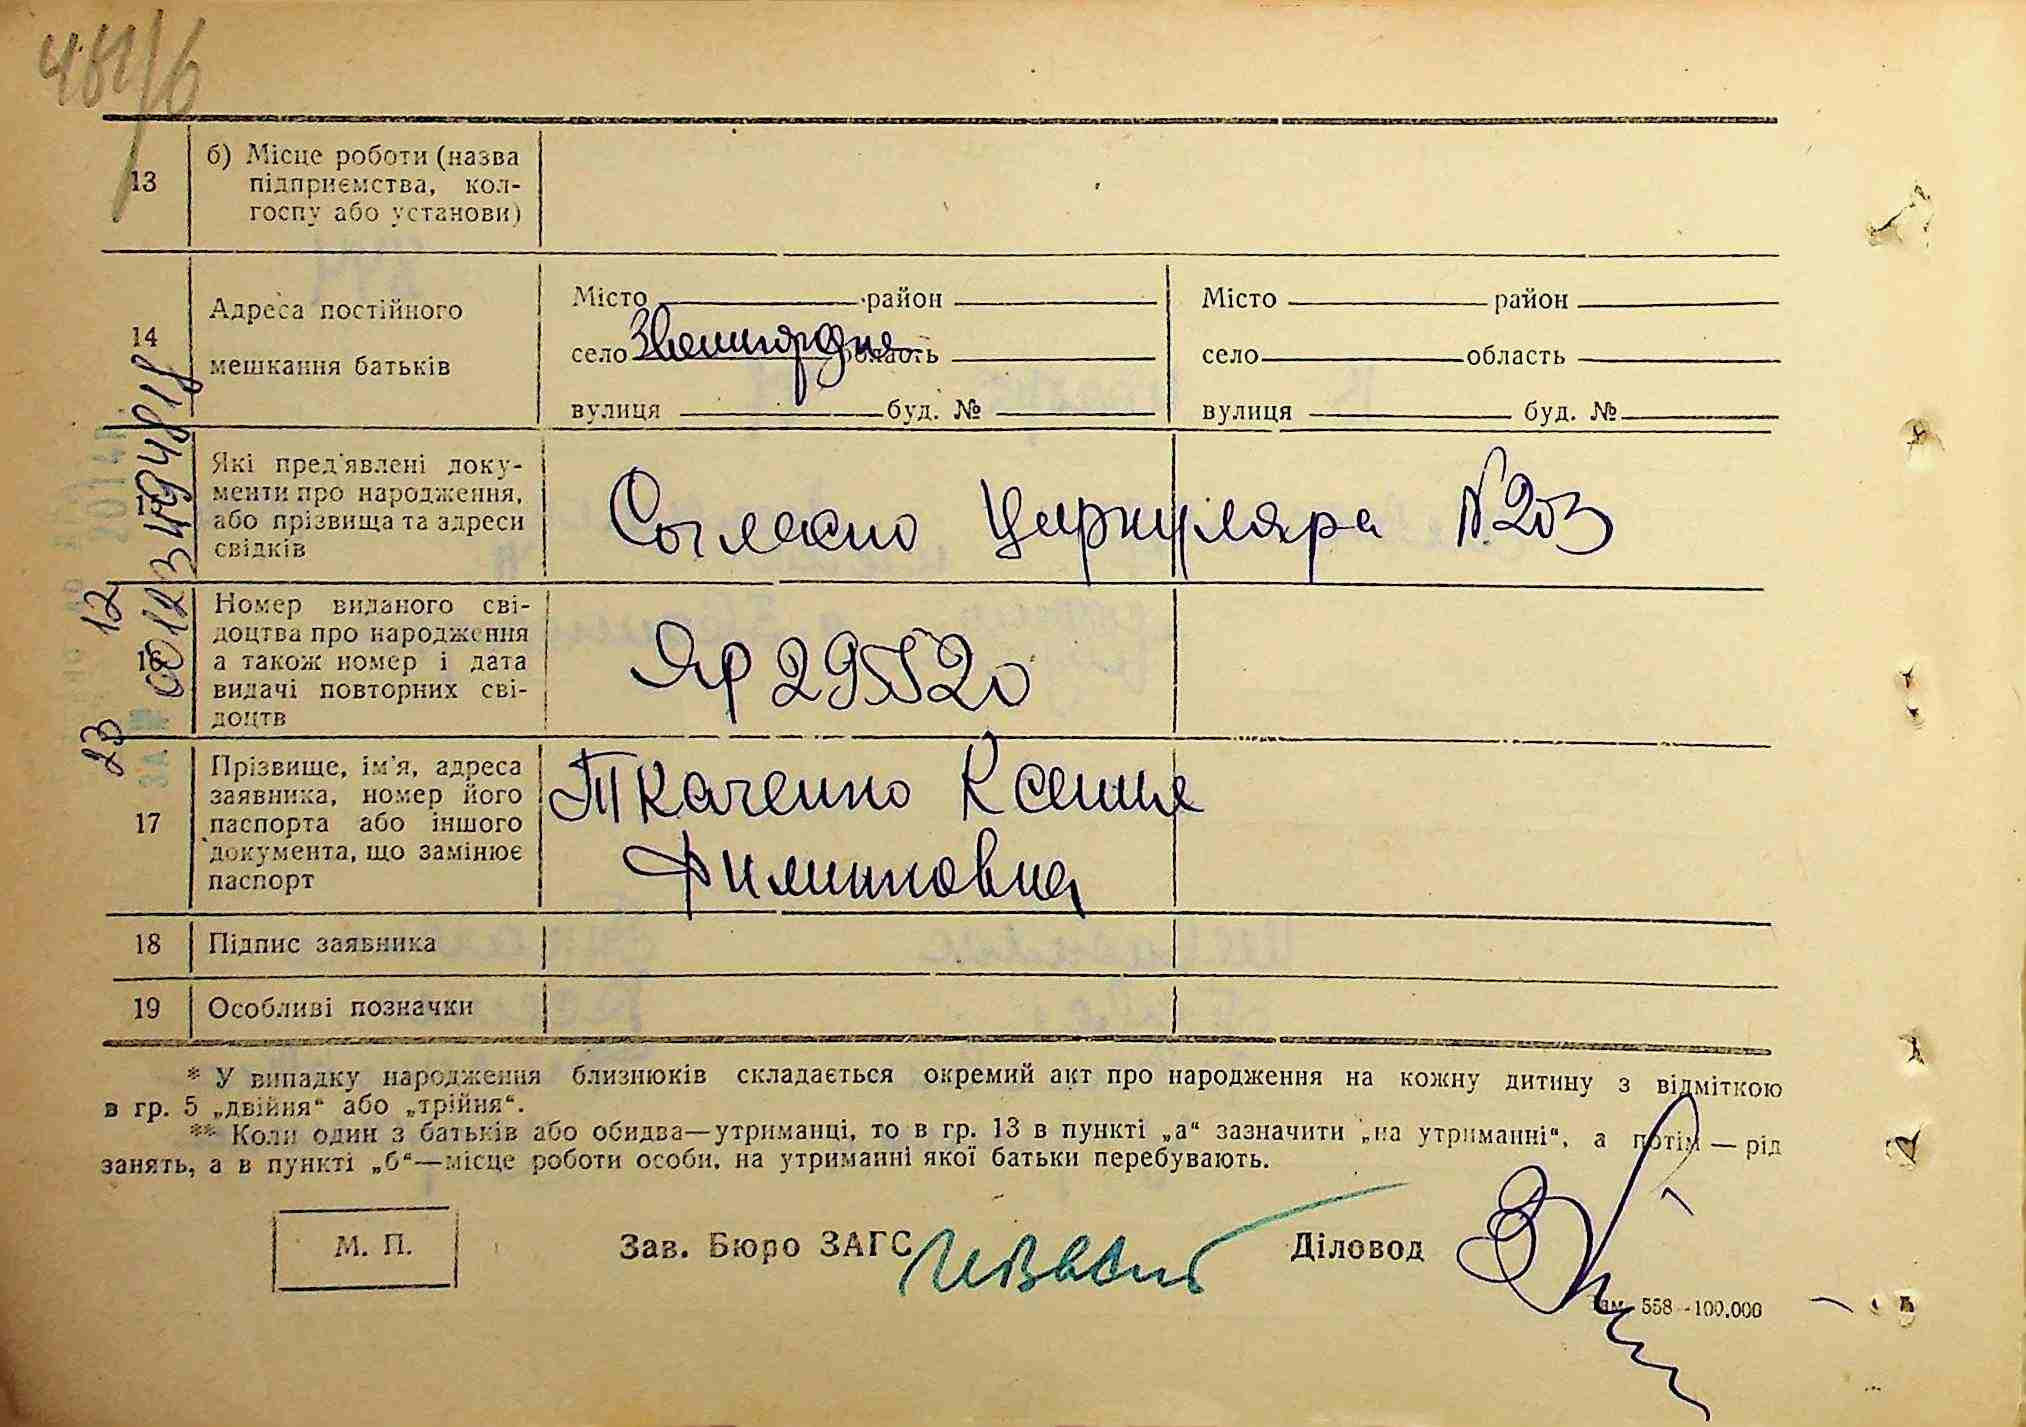 13
б) Місце роботи (назва
підприємства, кол-
госпу або установи)
14
Адреса постійного
мешкання батьків
Місто район
село Звенигородка область
вулиця буд. №
Місто район
село область
вулиця буд. №
Які пред'явлені доку-
менти про народження,
або прізвища та адреси
свідків
Согласно Циркуляра № 203
16
Номер виданого сві-
доцтва про народження
а також номер і дата
видачі повторних сві-
доцтв
ЯР 295520
17
Прізвище, ім'я, адреса
заявника, номер його
паспорта або іншого
документа, що замінює
паспорт
Ткаченко Ксения
18
Підпис заявника
19
Особливі позначки
* У випадку народження близнюків складається окремий акт про народження на кожну дитину з відміткою
в гр. 5 „двійня“ або „трійня“.
** Коли один з батьків або обидва—утриманці, то в гр. 13 в пункті „а“ зазначити „на утриманні“, а потім — рід
занять, а в пункті „б“—місце роботи особи, на утриманні якої батьки перебувають.
М. П.
Зав. Бюро ЗАГС
Діловод
558—100.000
23 12